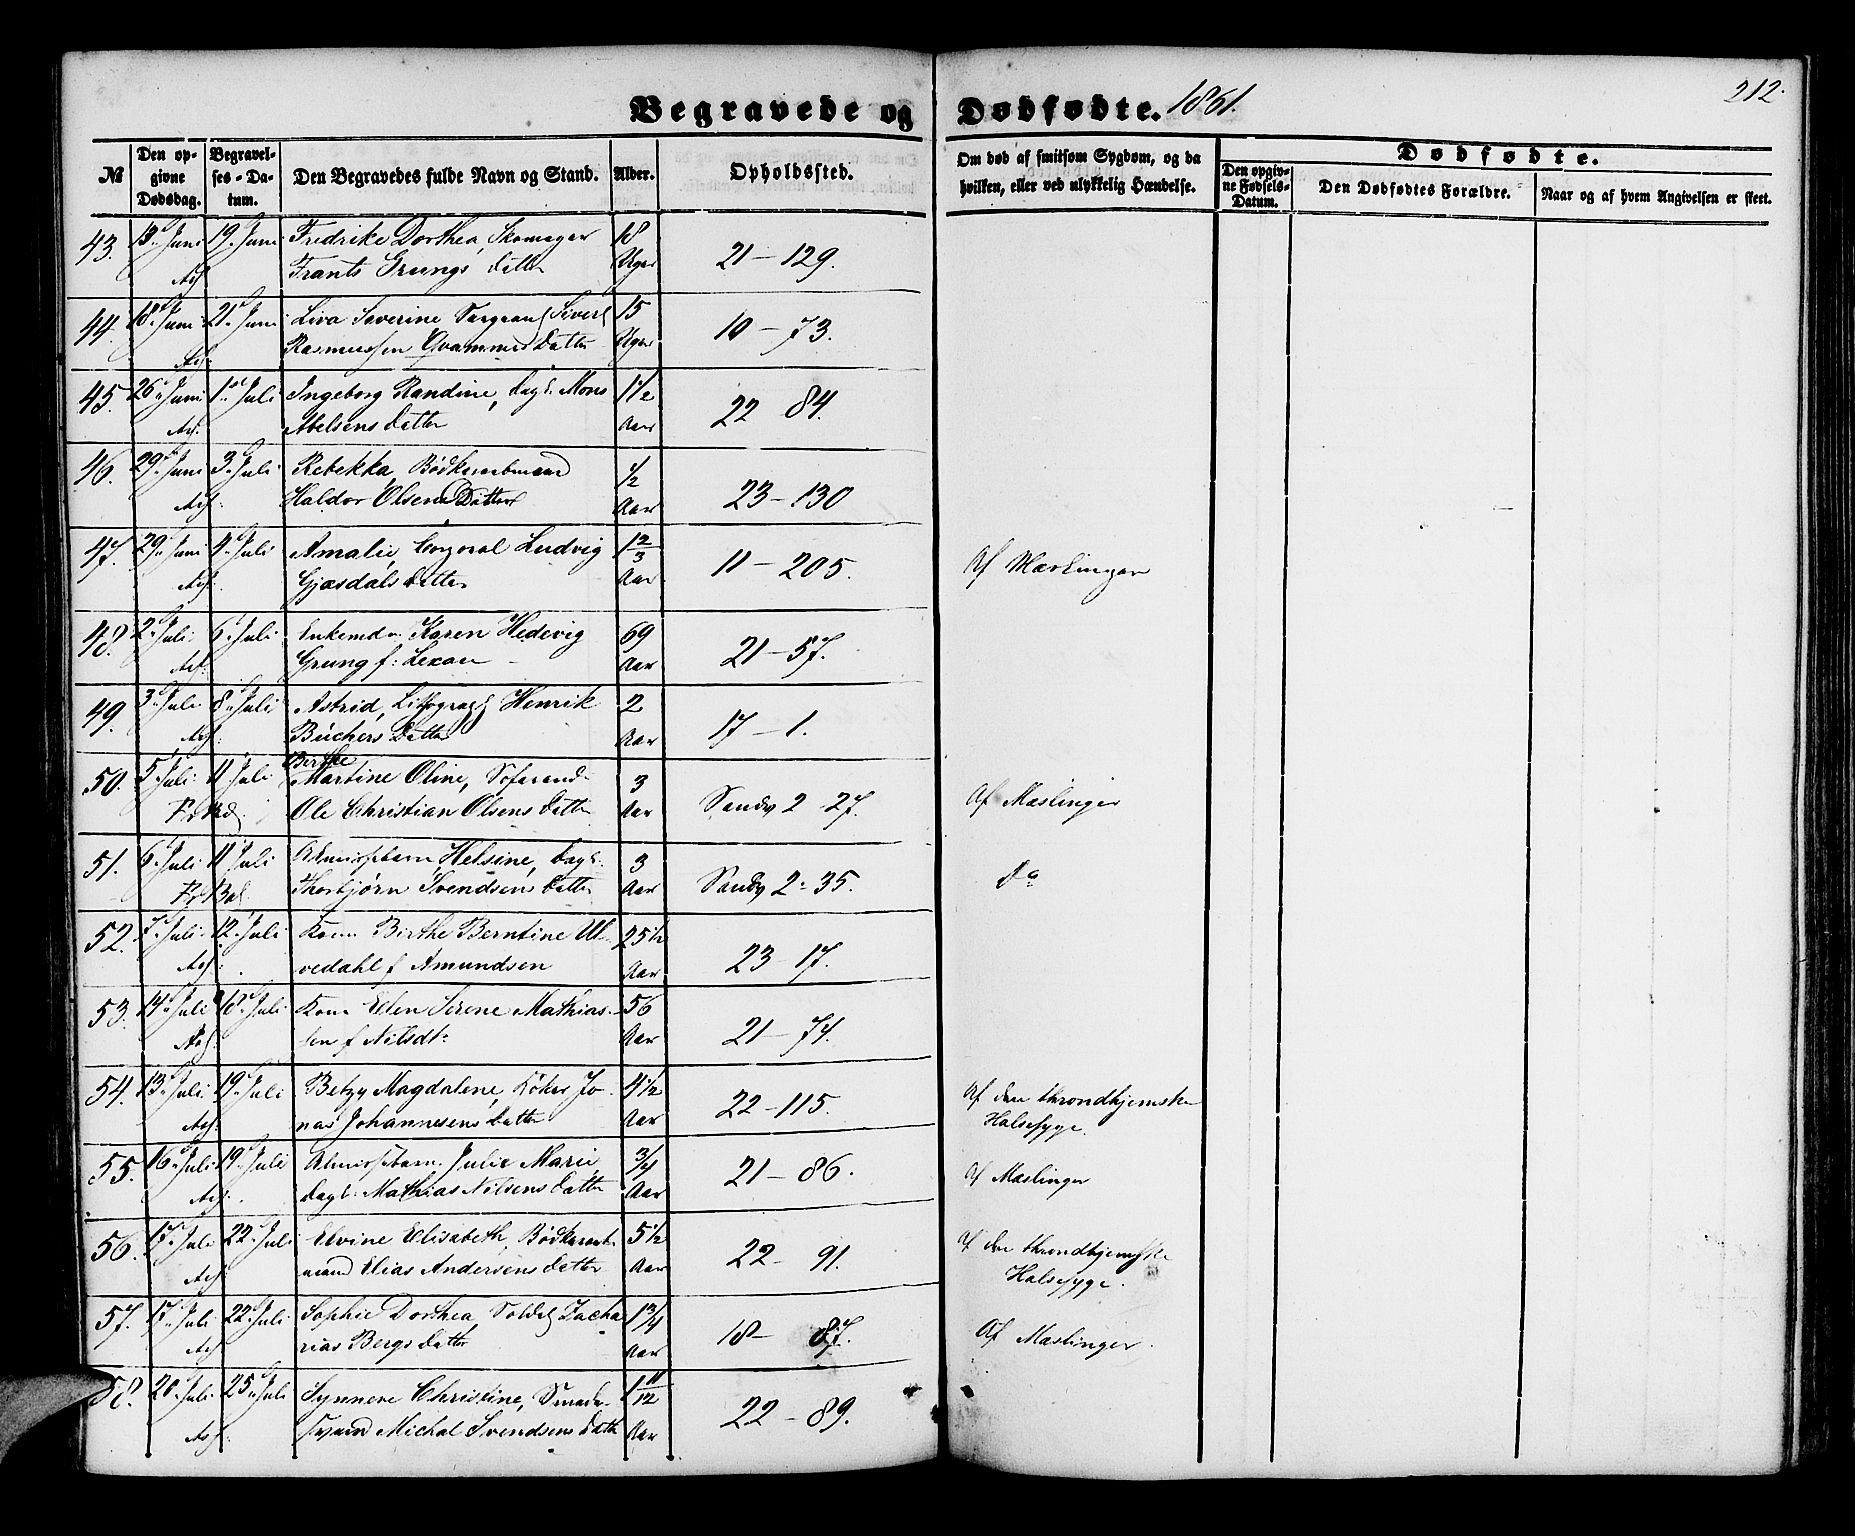 Begravede og Dødfødte. 1861. 212.
№ Den opgivne Dødsdag. Begravelses-Datum. Den Begravedes fulde Navn og Stand. Alder. Opholdssted. Om død af smitsom Sygdom, og da hvilken, eller ved ulykkelig Hændelse. Dødfødte. Den opgivne Fødsels-Datum. Den Dødfødtes Forældre. Naar og af hvem Angivelsen er skeet.
43. 13 Juni 19 Juni Fredrike Dorthea, Skomager 18
Frants Grungs Datter Uger 21 - 129.
44. 18 Juni 21 Juni Liva Severine Sergeant Sivert 15
Rasmussen Qvammes Datter Uger 10 - 73.
45. 26 Juni 1 Juli Ingeborg Randine, Dagl. Mons 1 1/2
Abelsens Datter Aar 22 84.
46. 29 Juni 3 Juli Rebekka, 1/2
Haldor Olsens Datter Aar 23 - 130
47. 29 Juni 4 Juli Amalie, Corporal Ludvig 1 2/3
Gjæsdals Datter Aar 11 - 205. Af Mæslinger
48. 2 Juli 6 Juli Karen Hedevig 69
Grung f: Lexau Aar 21 - 57.
49. 3 Juli 8 Juli Astrid, Lithograph Henrik 2
Büchers Datter Aar 17 - 1.
50. 5 Juli 11 Juli Birthe
Martine Oline, 3
Ole Christian Olsens Datter Aar Sandv 2 - 27. Af Mæslinger
51. 6 Juli 11 Juli Helsine, Dagl. 3
Thorbjørn Svendsens Datter Aar Sandv 2 - 35. do
52. 7 Juli 12 Juli Kone Birthe Berntine Ul- 25 1/2
vedahl f Amundsen Aar 23 - 17.
53. 14 Juli 18 Juli Kone Elen Serene Mathias- 56
sen f Nilsdtr Aar 21 - 74.
54. 13 Juli 19 Juli Betzy Magdalene, Jo- 4 1/2
nas Johannesens Datter Aar 22 - 115. Af den throndhjemske
Halsesyge.
55. 16 Juli 19 Juli Julie Marie 3/4
Dagl. Mathias Nilsens Datter Aar 21 - 86. Af Mæslinger
56. 17 Juli 22 Juli Elvine Elisabeth, 5 1/2
Elias Andersens Datter Aar 22 - 91. Af den throndhjemske
Halsesyge.
57. 17 Juli 22 Juli Sophie Dorthea, Soldat Zacha- 1 3/4
rias Bergs Datter Aar 18 - 87. Af Mæslinger.
58. 20 Juli 25 Juli Synneve Christine, Smede- 1 11/12
svend Michal Svendsens Datter Aar 22 - 89.